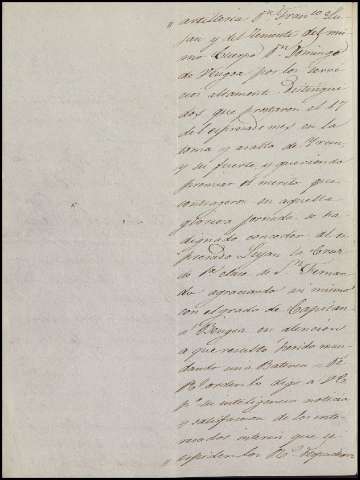 artilleria Dn. Franco. Lu-
jan y del Teniente del mis
mo Cuerpo Dn. Domingo
de Ungoa por los servi
cios altamente distingui
dos que prestaron el 17
del espresado mes en la
toma y asalto de Yrun,
y su fuerte, y queriendo
premiar el merito que
contrageron en aquella
gloriosa jornada se ha
dignado conceder al es
presado Lujan la Cruz
de 1a. clase de Sn. Fernan
do agraciando asi mismo
con el grado de Capitan
a Ungoa en atencion
a que resultó herido man
dando una Bateria = De
Rl. orden lo digo a V.E.
pa. su inteligencia noticia
y satisfaccion de los inte-
resados interin que se
espiden los Rs. Despachos